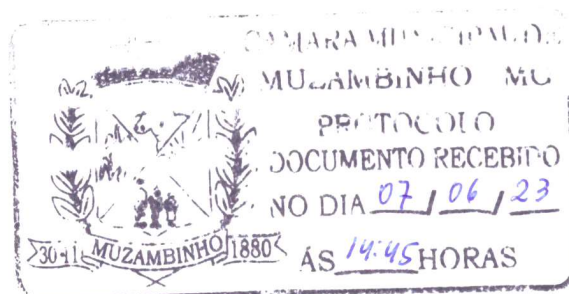 CAMARA MUNICIPAL DE
MUZAMBINHO MG
PROTOCOLO
DOCUMENTO RECEBIDO
NO DIA 07 / 06 / 23
ÁS 14:45 HORAS
30-11 MUZAMBINHO 1880